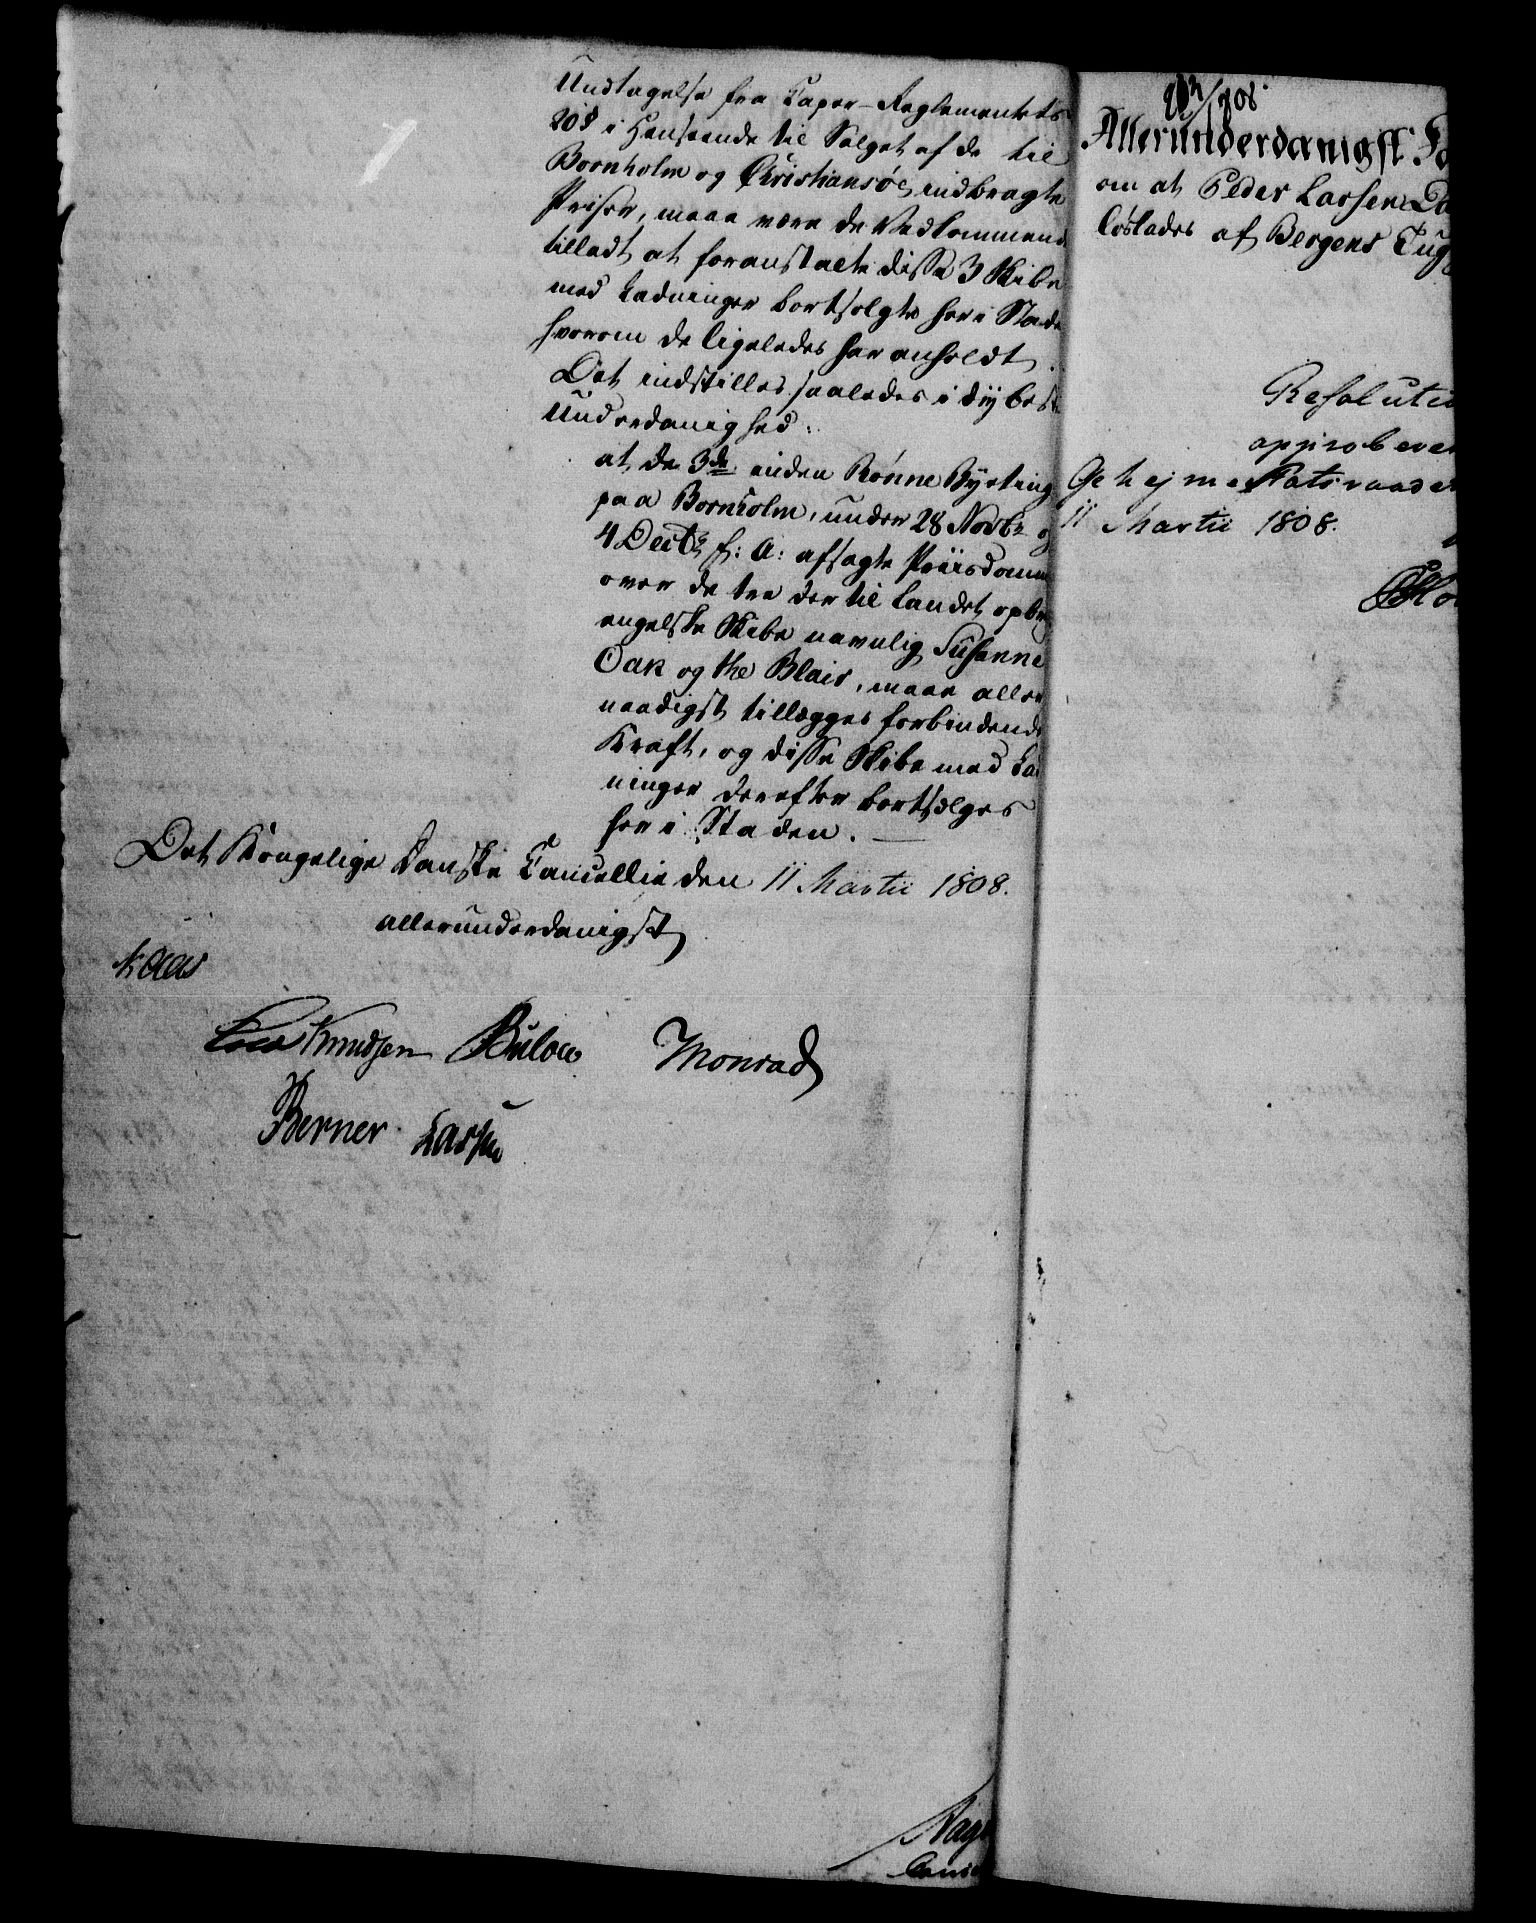 Undtagelse fra Caper-Reglementets
20 § i Henseende til Salget af de til
Bornholm og Christiansøe indbragte
Priser, maae være de Vedkommend
tilladt at foranstalte disse 3 Skibe
med Ladninger bortsolgte her i Stade
hvorom de ligeledes har anholdt.
Det indstilles saaledes i dybeste
Underdanighed:
at de 3de inden Rønne Byeting
paa Bornholm, under 28 Novbr og
4 Decbr f: A: afsagte Priisdomme
over de tre der til Landet opbr
engelske Skibe navnlig Susanne
Oak og the Blair, maae aller
naadigst tillægges forbindende
Kraft, og disse Skibe med Lad
ninger derefter bortsælges
her i Staden.
Det Kongelige Danske Cancellie den 11 Martii 1808.
allerunderdanigst
Kaas
Knudsen Bülow Monrad
Berner. Larsen
Allerunderdanigst Fo
om at Peder Larsen Da
løslades af Bergens Tugt
Resolutio
approberer
Geheime Statsraadet
11 Martii 1808.